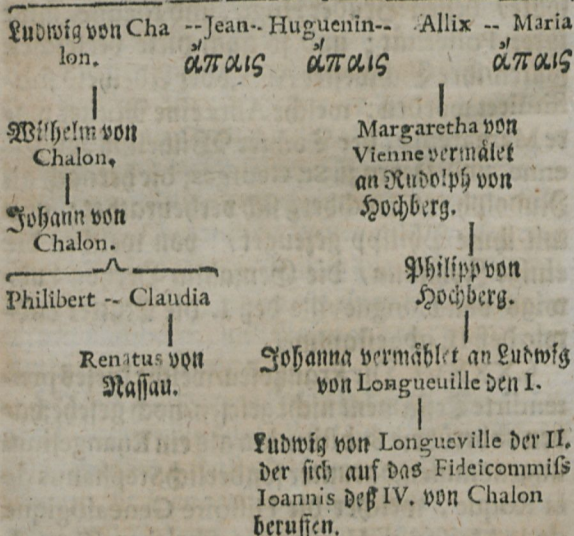 Ludwig von Cha -- Jean -- Huguenin -- Allix -- Maria
lon. ἄπαις ἄπαις ἄπαις
Wilhelm von
Chalon.
Johann von
Chalon.
Philibert -- Claudia
Renatus von
Nassau.
Margaretha von
Vienne vermålet
an Rudolph von
Hochberg.
Philipp von
Hochberg.
Johanna vermåhlet an Ludwig
von Longueuille den I.
Ludwig von Longueville der II.
der sich auf das Fideicommiss
Ioannis deß IV. von Chalon
beruffen.